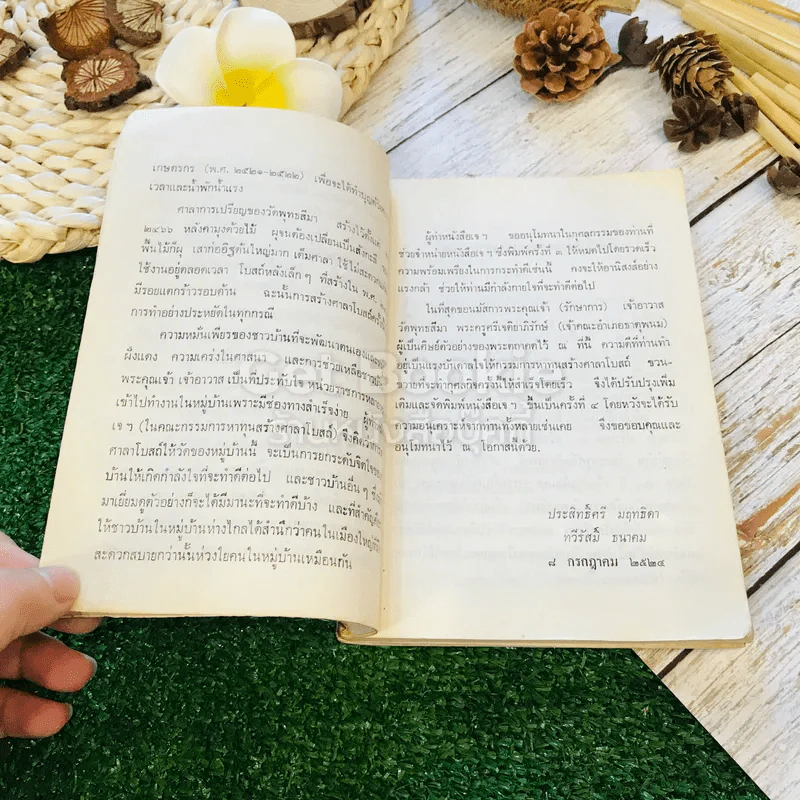 เกษตรกร (พ.ศ. ๒๕๒๑-๒๕๒๒) เพื่อจะได้ทำบุญ
เวลาและน้ำพักน้ำแรง
ศาลาการเปรียญของวัดพุทธสีมา สร้างไว้ตั้งแต่
๒๔๖๖ หลังคามุงด้วยไม้ ผุจนต้องเปลี่ยนเป็นสังกะสี
พื้นไม้ก็ผุ เสาก่ออิฐต้นใหญ่มาก เต็มศาลา ใช้ไม่สะดวก
ใช้งานอยู่ตลอดเวลา โบสถ์หลังเล็ก ๆ ที่สร้างใน พ.ศ.
มีรอยแตกร้าวรอบด้าน ฉะนั้นการสร้างศาลาโบสถ์ครั้งนี้
การทำอย่างประหยัดในทุกกรณี
ความหมั่นเพียรของชาวบ้านที่จะพัฒนาตนเอง
ฝั่งแดง ความเคร่งในศาสนา และการช่วยเหลือ
พระคุณเจ้า เจ้าอาวาส เป็นที่ประทับใจ หน่วยราชการหลาย
เข้าไปทำงานในหมู่บ้านเพราะมีช่องทางสำเร็จง่าย ผู้ทำ
เจ ฯ (ในคณะกรรมการหาทุนสร้างศาลาโบสถ์) จึงคิดว่าการ
ศาลาโบสถ์ให้วัดของหมู่บ้านนี้ จะเป็นการยกระดับจิตใจของ
บ้านให้เกิดกำลังใจที่จะทำดีต่อไป และชาวบ้านอื่น ๆ ซึ่ง
มาเยี่ยมดูตัวอย่างก็จะได้มีมานะที่จะทำดีบ้าง และที่สำคัญ
ให้ชาวบ้านในหมู่บ้านห่างไกลได้สำนึกว่าคนในเมืองใหญ่
สะดวกสบายกว่านั้นห่วงใยคนในหมู่บ้านเหมือนกัน
ผู้ทำหนังสือเจ ฯ ขออนุโมทนาในกุศลกรรมของท่านที่
ช่วยจำหน่ายหนังสือเจ ฯ ซึ่งพิมพ์ครั้งที่ ๓ ให้หมดไปโดยรวดเร็ว
ความพร้อมเพรียงในการกระทำดีเช่นนี้ คงจะให้อานิสงส์อย่าง
แรงกล้า ช่วยให้ท่านมีกำลังกายใจที่จะทำดีต่อไป
ในที่สุดขอนมัสการพระคุณเจ้า (รักษาการ) เจ้าอาวาส
วัดพุทธสีมา พระครูศรีเจติยาภิรักษ์ (เจ้าคณะอำเภอธาตุพนม)
ผู้เป็นศิษย์ตัวอย่างของพระตถาคตไว้ ณ ที่นี้ ความดีที่ท่านทำ
อยู่เป็นแรงบันดาลใจให้กรรมการหาทุนสร้างศาลาโบสถ์ ขวน-
ขวายที่จะทำกุศลกิจครั้งนี้ให้สำเร็จโดยเร็ว จึงได้ปรับปรุงเพิ่ม
เติมและจัดพิมพ์หนังสือเจ ฯ ขึ้นเป็นครั้งที่ ๔ โดยหวังจะได้รับ
ความอนุเคราะห์จากท่านทั้งหลายเช่นเคย จึงขอขอบคุณและ
อนุโมทนาไว้ ณ โอกาสด้วย.
ประสิทธิ์ศรี มฤทธิดา
ทวีรัสมิ์ ธนาคม
๘ กรกฎาคม ๒๕๒๔